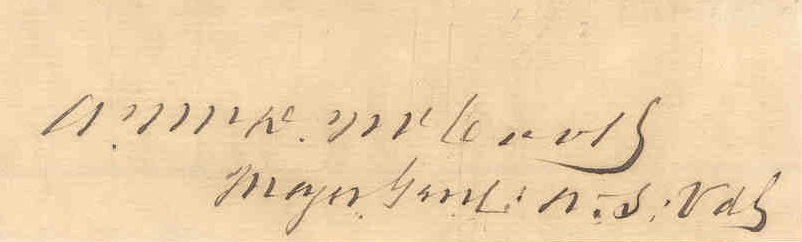 A. McD. McCook
Major Genl: U.S. Vols